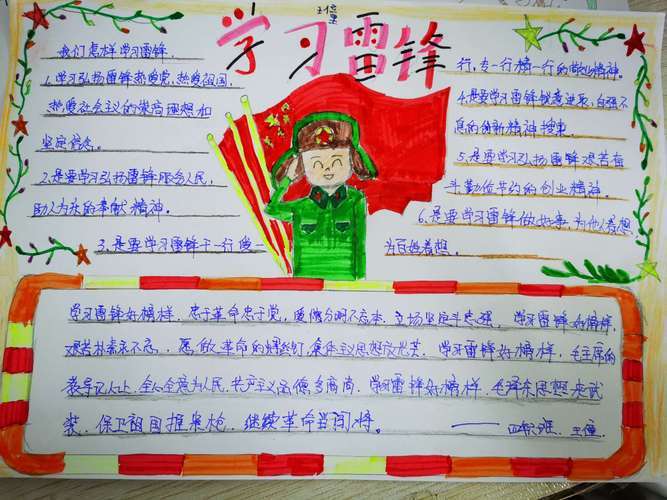 学习雷锋
我们怎样学习雷锋
1.学习弘扬雷锋热爱党,热爱祖国,
热爱社会主义的崇高理想和
坚定信念。
2.是要学习弘扬雷锋服务人民,
助人为乐的奉献精神。
3.是要学习雷锋干一行爱一
行,专一行精一行的敬业精神。
4.是要学习雷锋锐意进取,自强不
息的创新精神
5.是要学习弘扬雷锋艰苦奋
斗勤俭节约的创业精神。
6.是要学习雷锋做好事,为他人着想
为百姓着想。
学习雷锋好榜样,忠于革命忠于党,爱憎分明不忘本,立场坚定斗志强,学习雷锋好榜样,
艰苦朴素永不忘,愿做革命的螺丝钉,集体主义思想放光芒,学习雷锋好榜样,毛主席的
教导记心上,全心全意为人民,共产主义品德多高尚,学习雷锋好榜样,毛泽东思想来武
装,保卫祖国握紧枪,继续革命当闯将。